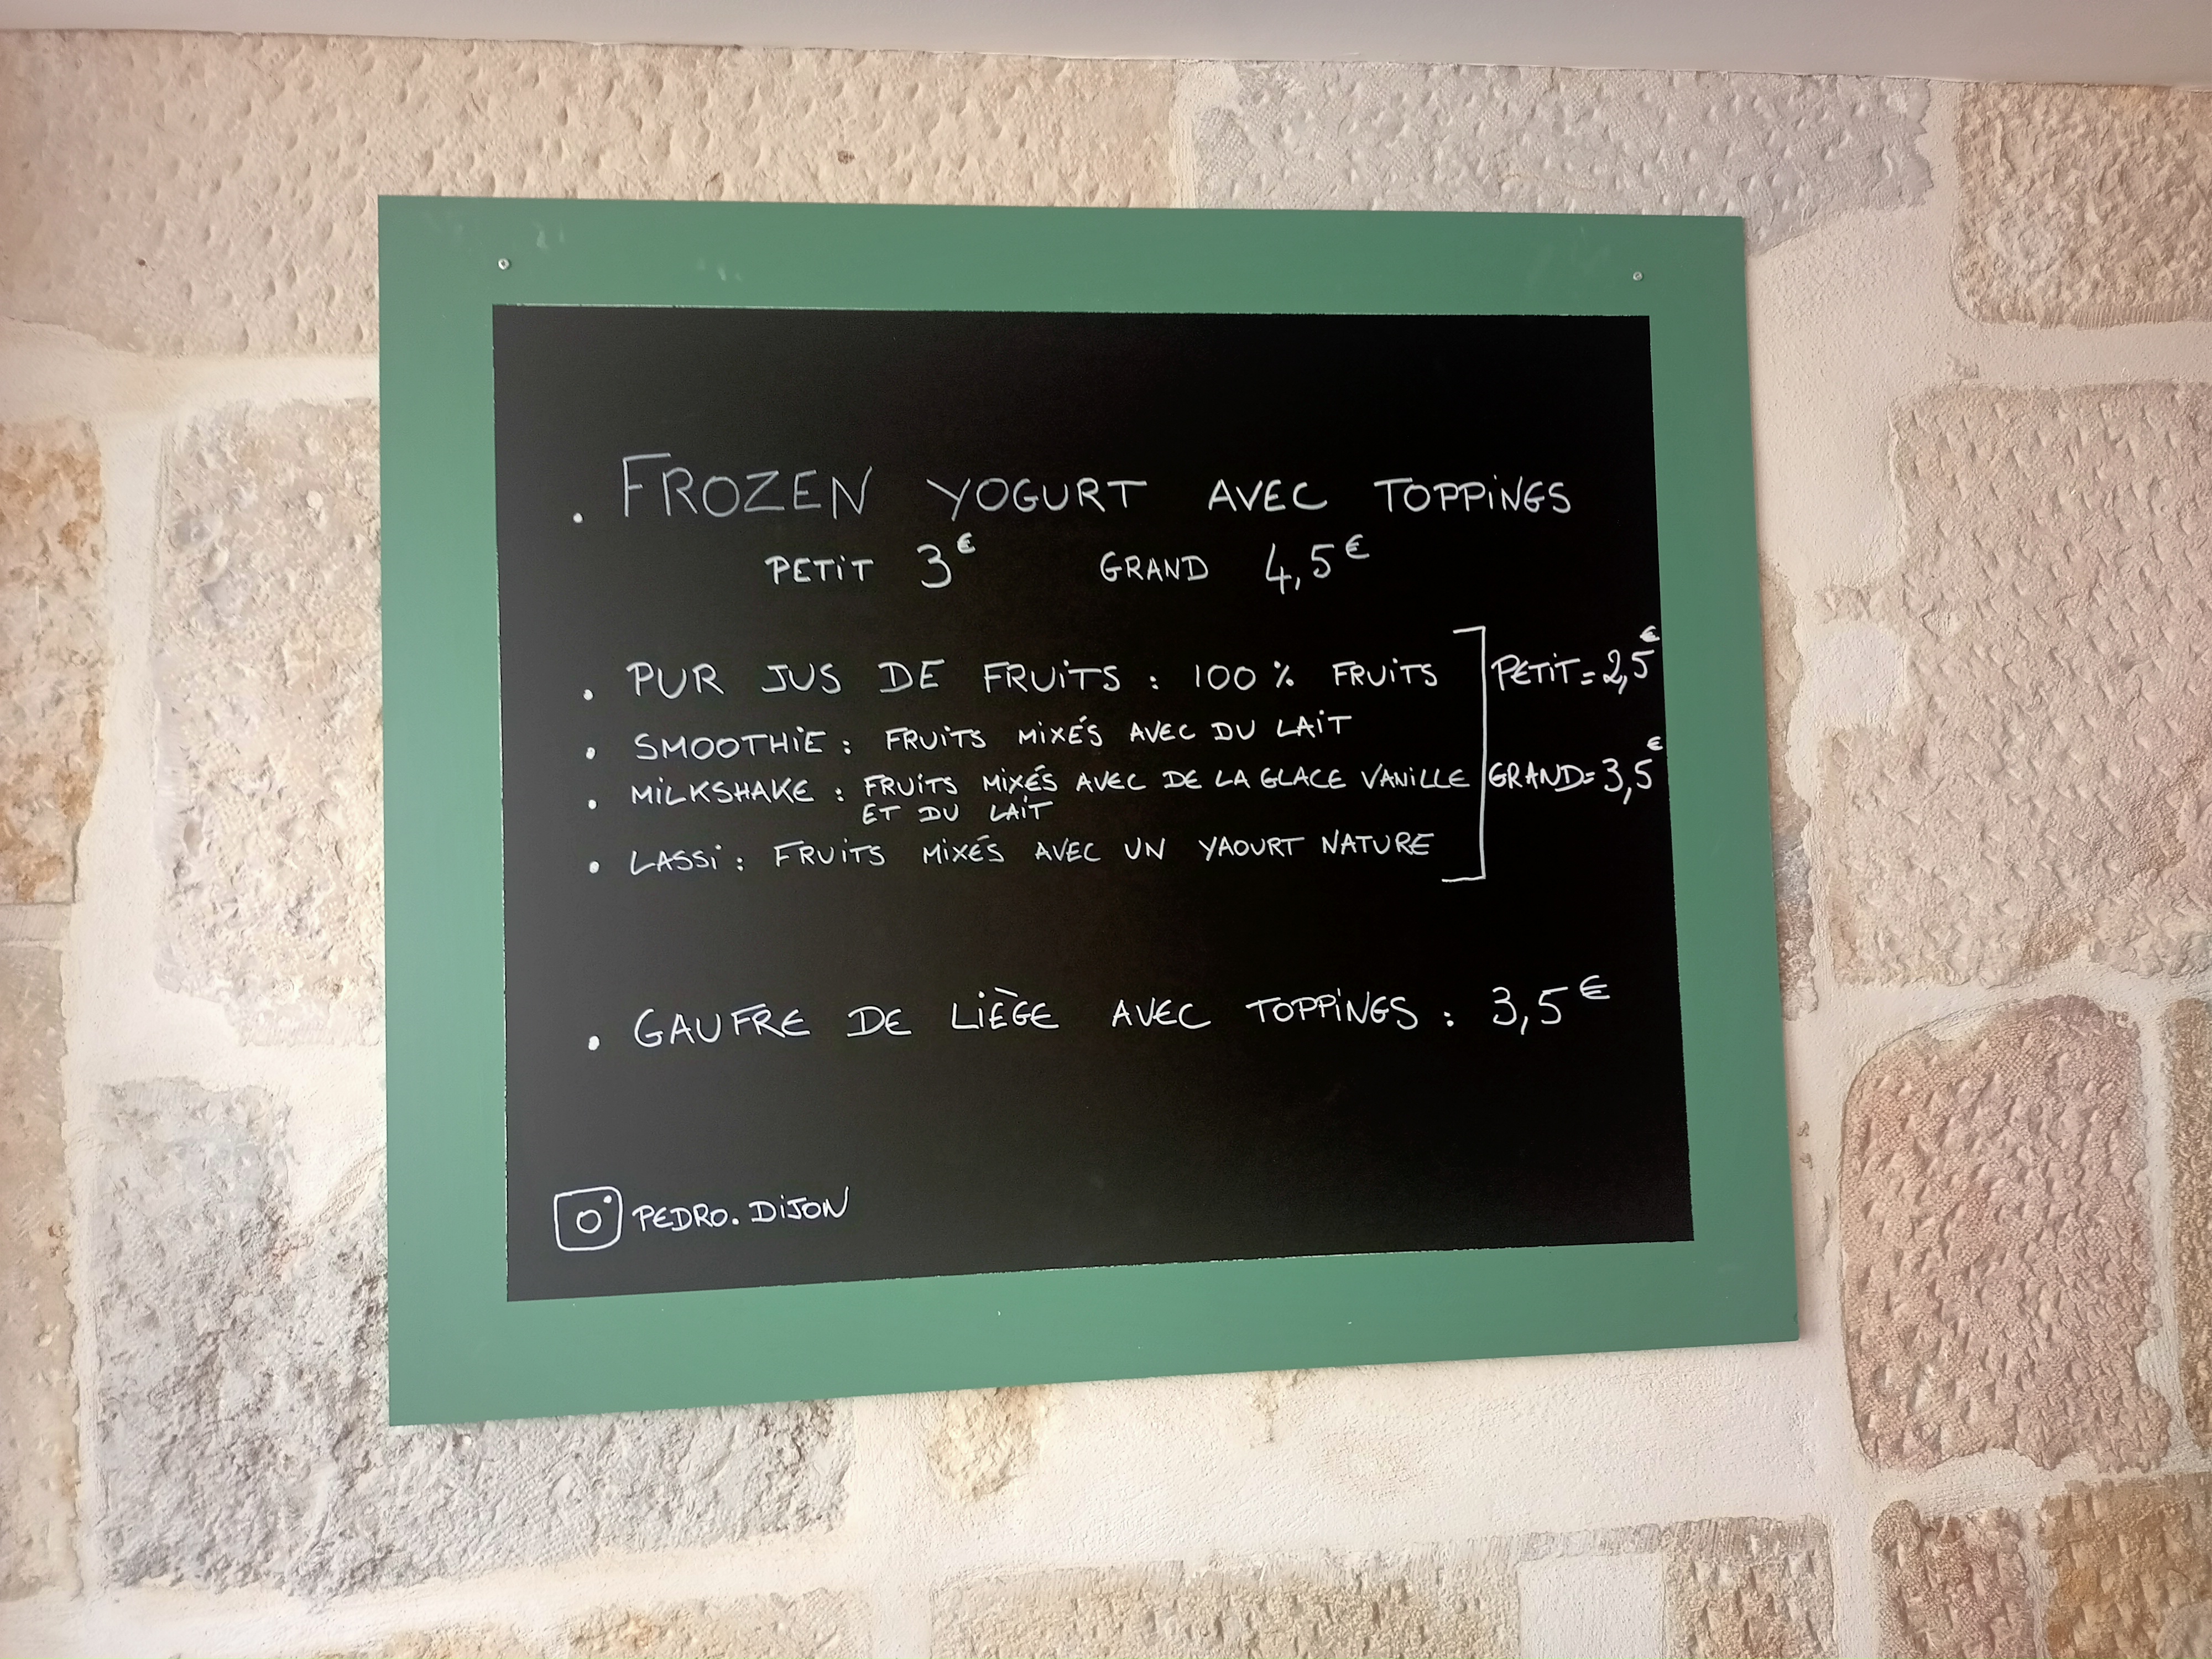 . FROZEN YOGURT AVEC TOPPINGS
PETIT 3€ GRAND 4,5€
. PUR JUS DE FRUITS : 100 % FRUITS
. SMOOTHIE : FRUITS MIXÉS AVEC DU LAIT
. MILKSHAKE : FRUITS MIXÉS AVEC DE LA GLACE VANILLE
ET DU LAIT
. LASSI : FRUITS MIXÉS AVEC UN YAOURT NATURE
PETIT = 2,5€
GRAND = 3,5€
. GAUFRE DE LIÈGE AVEC TOPPINGS : 3,5€
PEDRO.DIJON